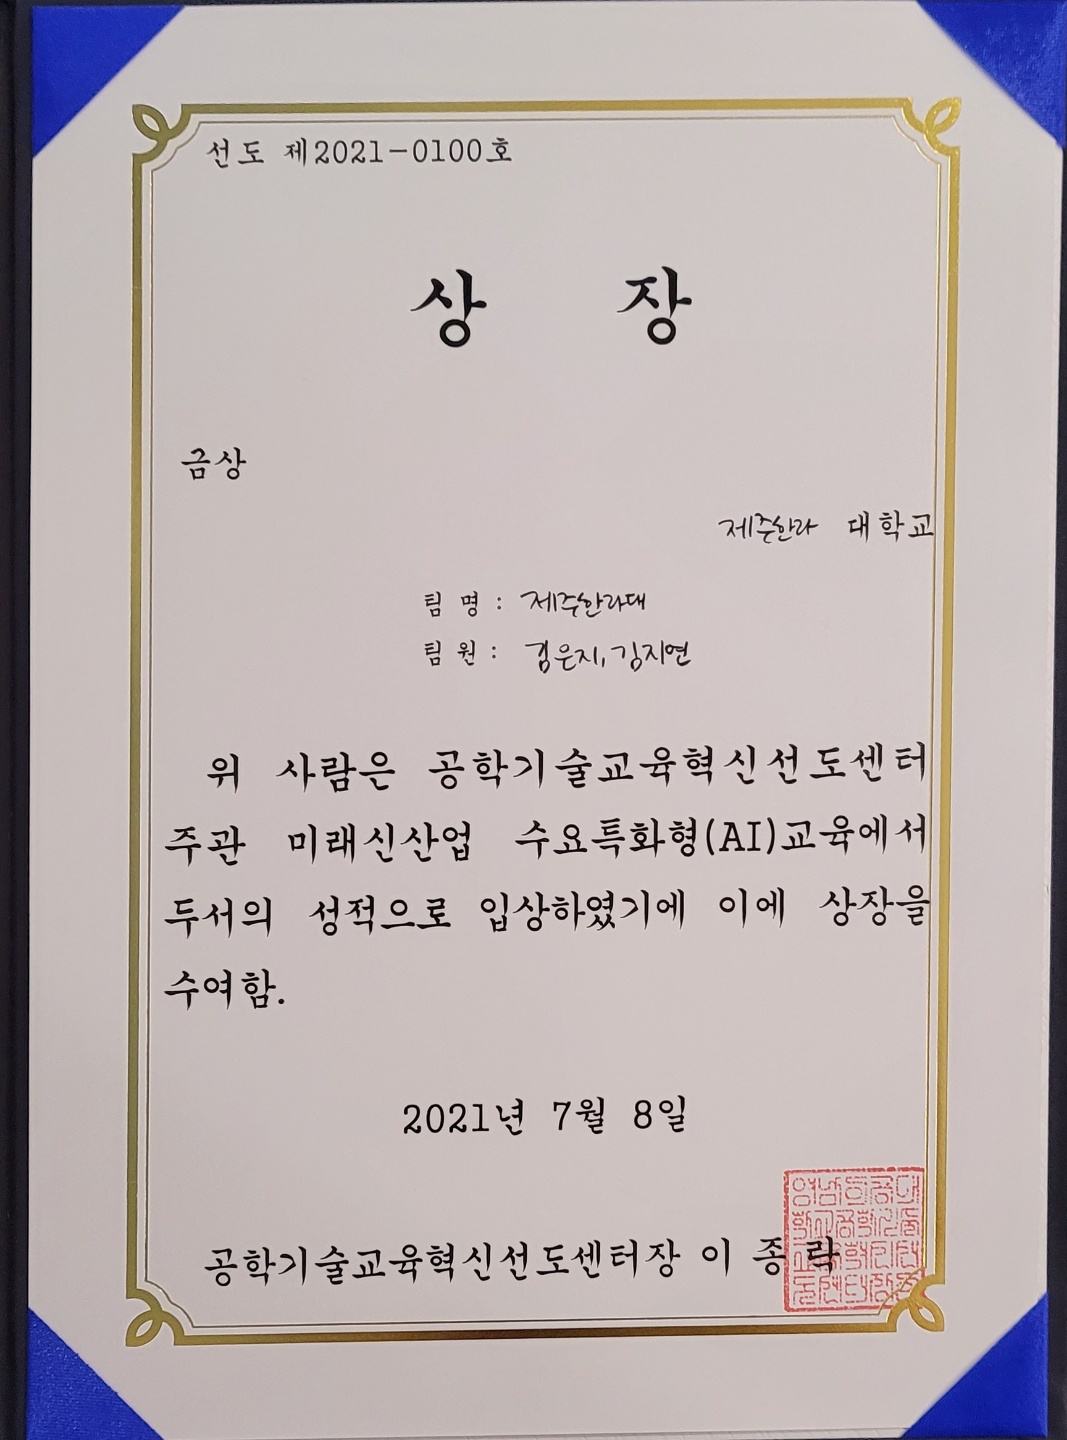 선도 제2021-0100호
상 장
금상
제주한라 대학교
팀 명 : 제주한라대
팀 원 : 김은지, 김지연
위 사람은 공학기술교육혁신선도센터
주관 미래신산업 수요특화형(AI)교육에서
두서의 성적으로 입상하였기에 이에 상장을
수여함.
2021년 7월 8일
공학기술교육혁신선도센터장 이 종 락